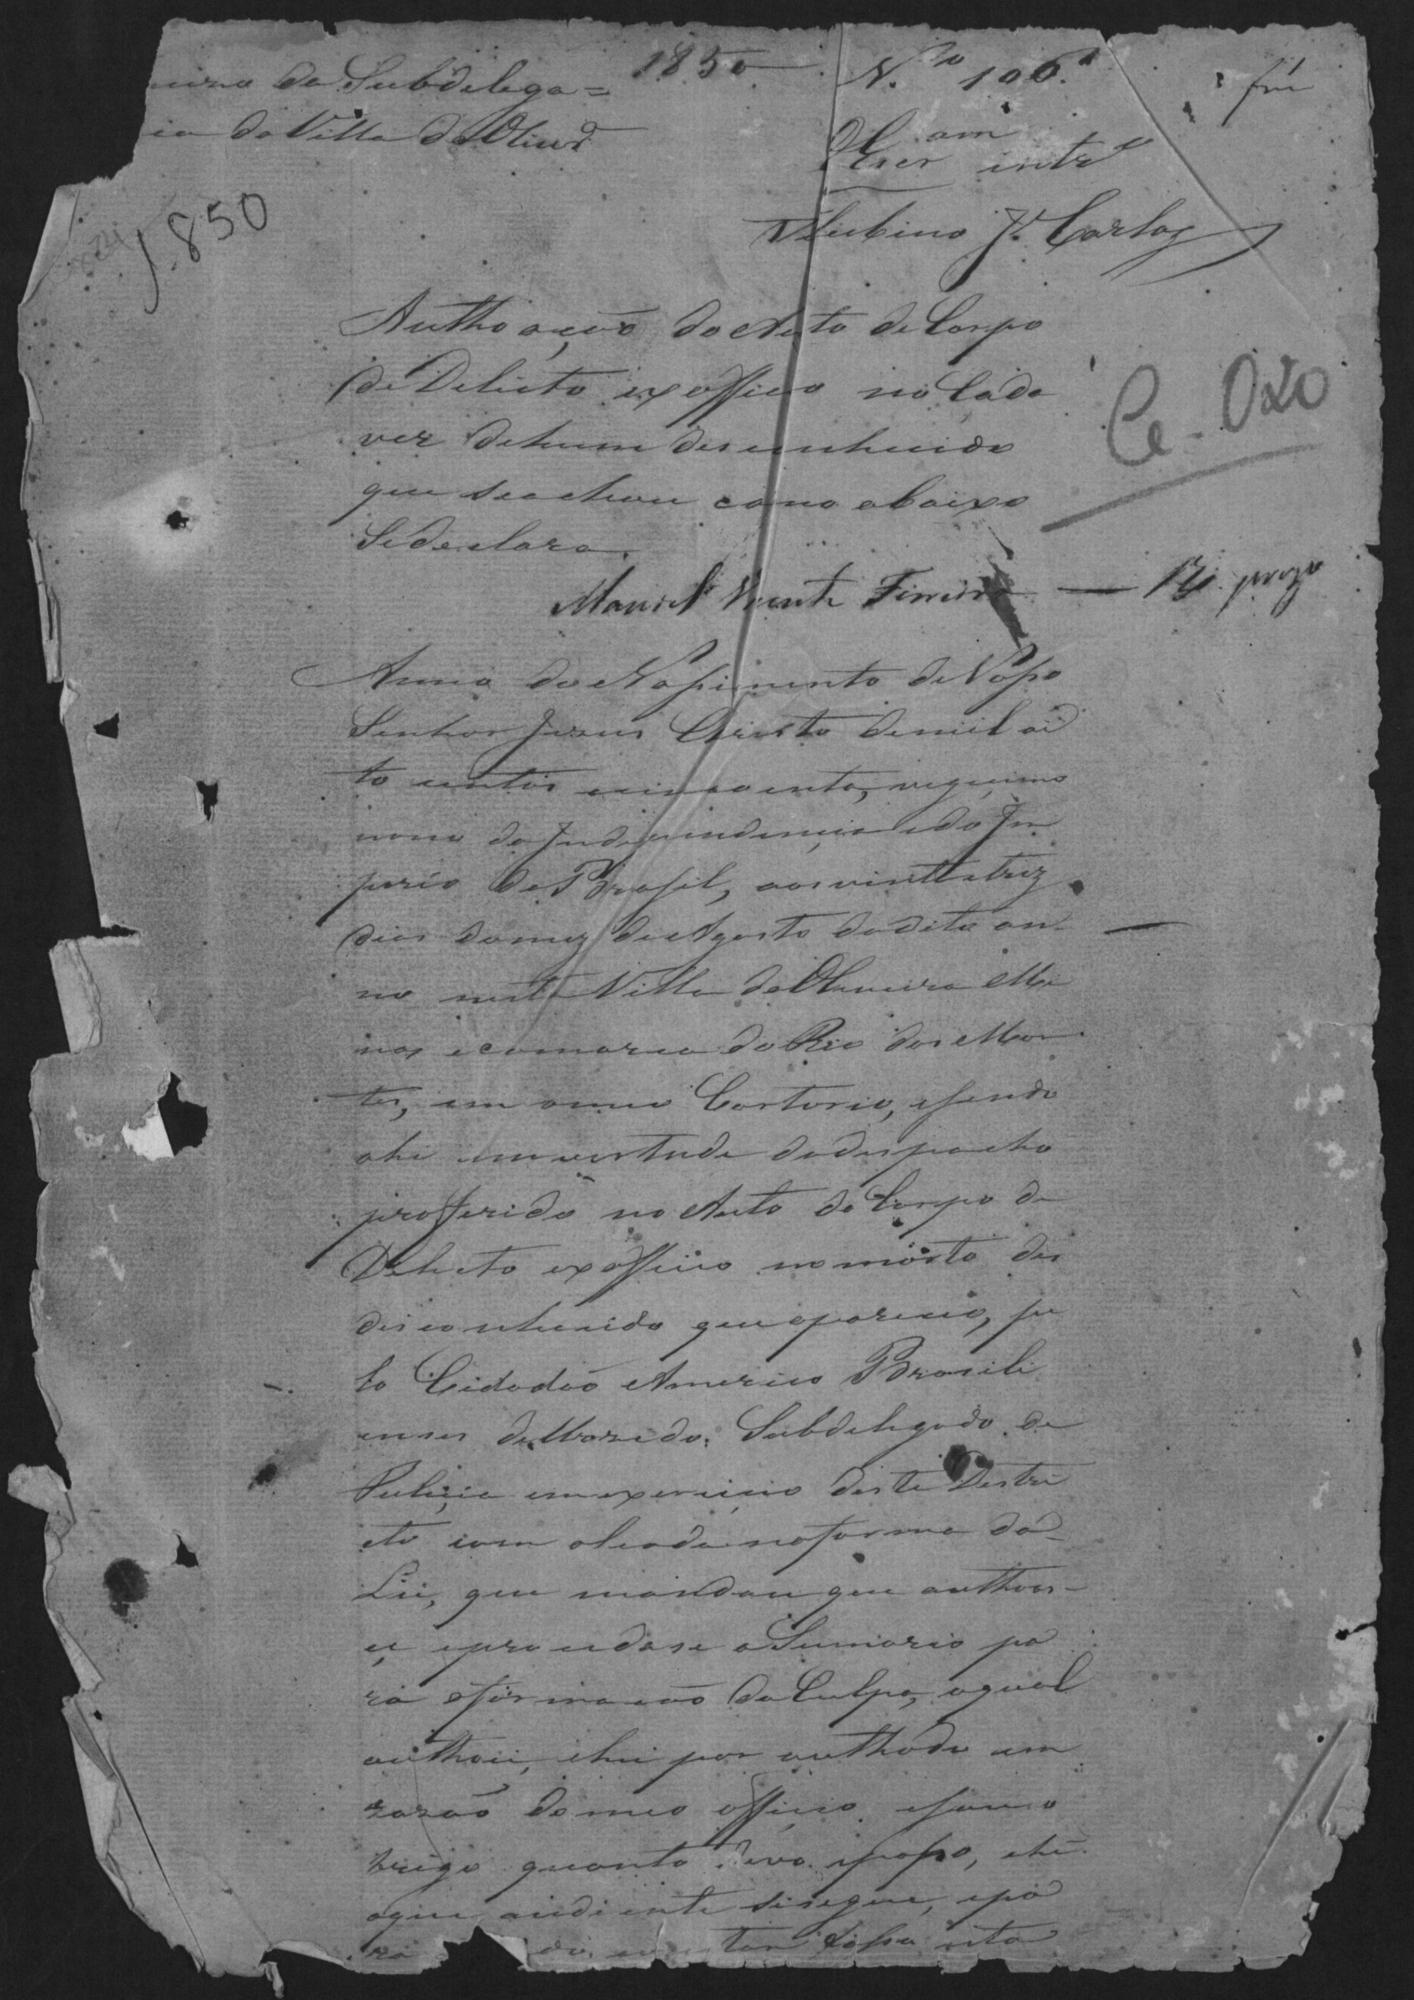 1850 N.º 106.
da Subdelega=
cia da Villa de Olivrª
1850
Escr am intº
Albino Jº Carlos
Authoação do Auto de Corpo
de Delicto ex officio no Cada
ver de hum desconhecido
que se achou como abaixo
Se declara.
Ce - 020
Manoel Vicente Ferreira —
Anno do Nascimento de Nosso
Senhor Jesus Christo de mil oi
to centos cincoenta, vigecimo
nono da Independencia e do Im
perio do Brasil, aos vinte e trez
dias do mez de Agosto do dito an
no nesta Villa de Oliveira Mi
nas e comarca do Rio das Mor
tes, em o meu Cartorio, e sendo
ahi em vertude do despacho
proferido no Auto de Corpo de
Delicto ex officio no morto des
desconhecido que apareceo, pe
lo Cidadão Americo Brasili
ense de Subdelegado de
Pulicia em exercicio deste Destri
cto com alçada na forma da
Lei, que mandou que authoas-
e e procedase a Sumario pa
ra a formação da Culpa, a qual
authoei, e hei por authoada em
razão do meo officio e sou o
brigo quanto devo e posso, e hé
o que audiente se segue, e pa
ra constar esta